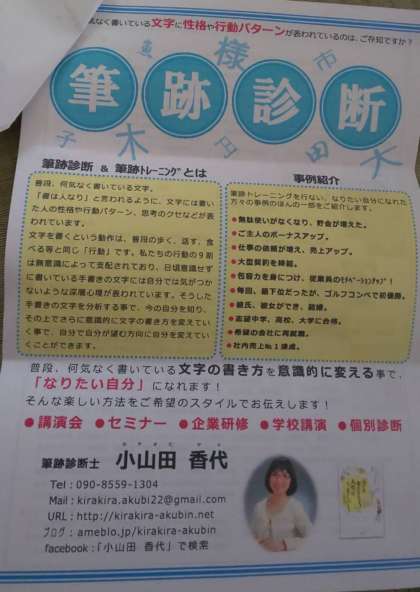 何気なく書いている文字に性格や行動パターンが表われているのは、ご存知ですか？
魚 様 市
筆跡診断
子 木 円 田 大
筆跡診断 & 筆跡トレーニングとは
普段、何気なく書いている文字。
「書は人なり」と言われるように、文字には書い
た人の性格や行動パターン、思考のクセなどが表
れています。
文字を書くという動作は、普段の歩く、話す、食
べる等と同じ「行動」です。私たちの行動の9割
は無意識によって支配されており、日頃意識せず
に書いている手書きの文字には自分では気がつか
ないような深層心理が表われています。そうした
手書きの文字を分析する事で、今の自分を知り、
その上でさらに意識的に文字の書き方を変えてい
く事で、自分で自分が望む方向に自分を変えてい
くことができます。
事例紹介
筆跡トレーニングを行ない、なりたい自分になれた
方々の事例のほんの一部をご紹介します。
●無駄使いがなくなり、貯金が増えた。
●ご主人のボーナスアップ。
●仕事の依頼が増え、売上アップ。
●大型契約を締結。
●包容力を身につけ、従業員のモチベーションアップ！
●毎回、最下位だったが、ゴルフコンペで初優勝。
●彼氏、彼女ができ、結婚。
●志望中学、高校、大学に合格。
●希望の会社に再就職。
●社内売上No.1達成。
普段、何気なく書いている文字の書き方を意識的に変える事で、
「なりたい自分」になれます！
そんな楽しい方法をご希望のスタイルでお伝えします！
●講演会 ●セミナー ●企業研修 ●学校講演 ●個別診断
筆跡診断士 小山田 香代
Tel：090-8559-1304
Mail：kirakira.akubi22@gmail.com
URL：http://kirakira-akubin.net
ブログ：ameblo.jp/kirakira-akubin
facebook：「小山田 香代」で検索